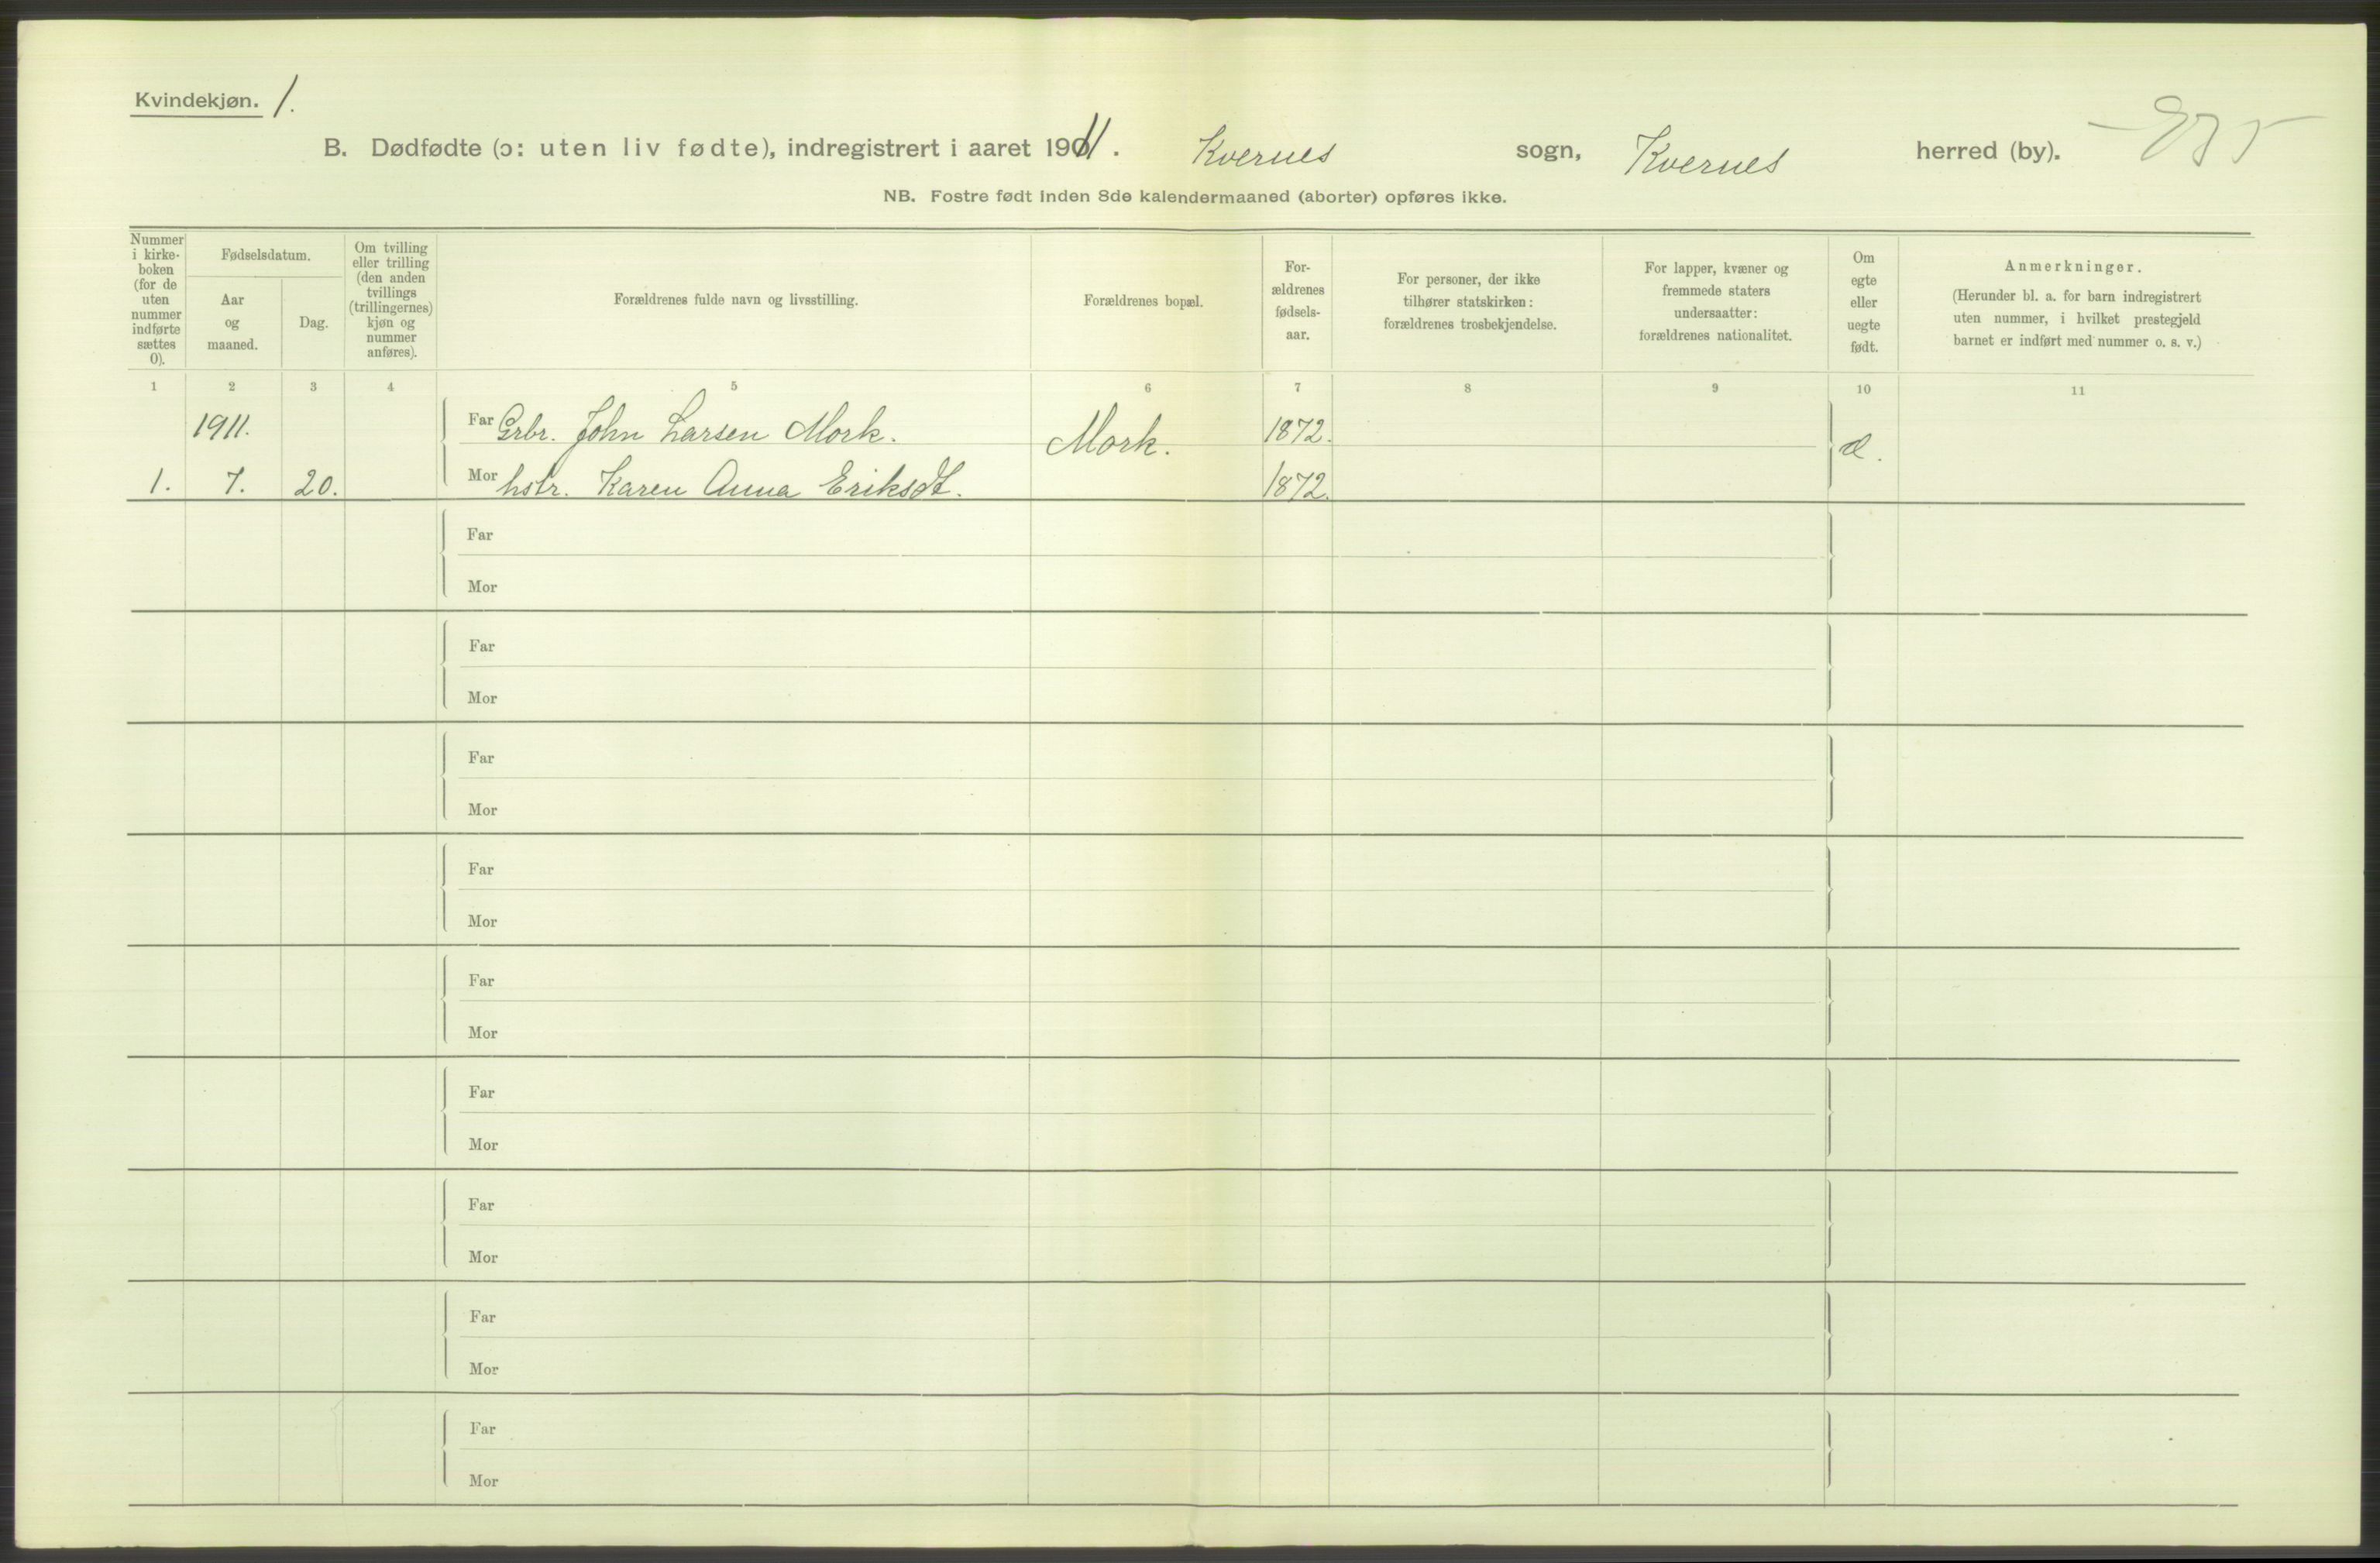 Kvindekjøn. 1.
B. Dødfødte (ɔ: uten liv fødte), indregistrert i aaret 1911. Kvernes sogn, Kvernes herred (by).
NB. Fostre født inden 8de kalendermaaned (aborter) opføres ikke.
Nummer i kirke-boken (for de uten nummer indførte sættes 0).
Fødselsdatum.
Aar og maaned.
Dag.
Om tvilling eller trilling (den anden tvillings (trillingernes) kjøn og nummer anføres).
Forældrenes fulde navn og livsstilling.
Forældrenes bopæl.
For-ældrenes fødsels-aar.
For personer, der ikke tilhører statskirken: forældrenes trosbekjendelse.
For lapper, kvæner og fremmede staters undersaatter: forældrenes nationalitet.
Om egte eller uegte født.
Anmerkninger.
(Herunder bl. a. for barn indregistrert uten nummer, i hvilket prestegjeld barnet er indført med nummer o. s. v.)
1 2 3 4 5 6 7 8 9 10 11
1911. Far Grbr. John Larsen Mork. Mork. 1872. æ.
1. 7. 20. Mor hstr. Karen Anna Eriksdt. 1872.
Far
Mor
Far
Mor
Far
Mor
Far
Mor
Far
Mor
Far
Mor
Far
Mor
Far
Mor
Far
Mor